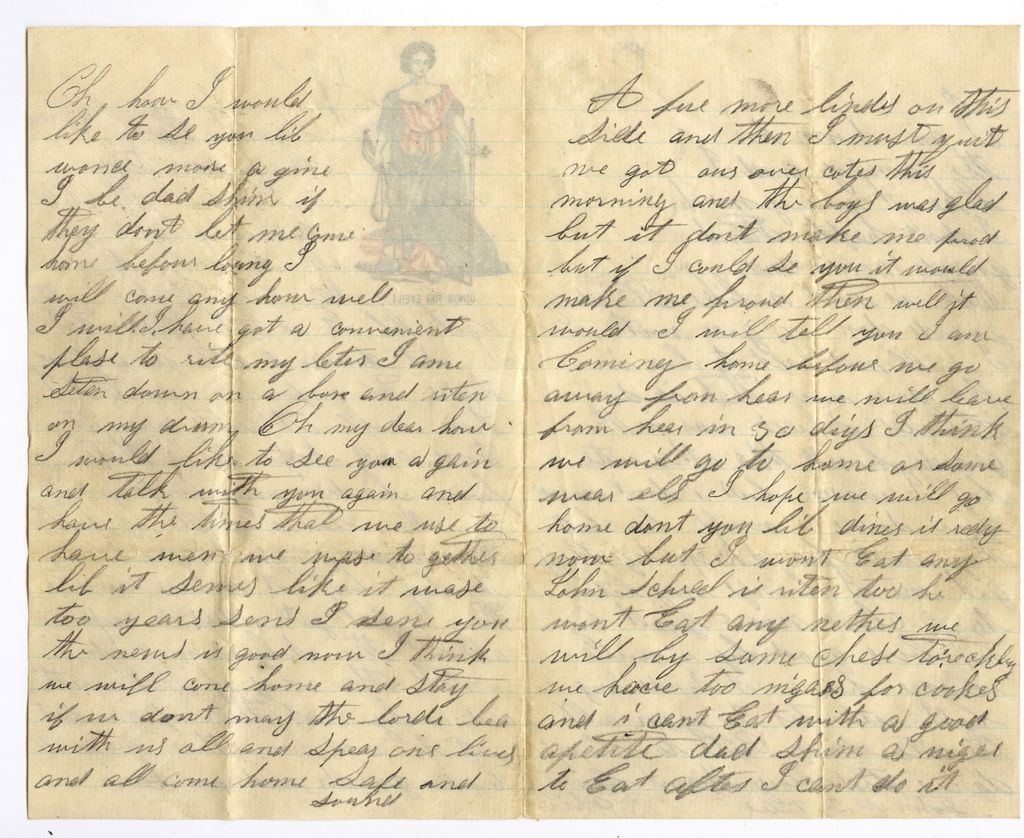 Oh how I would
like to se you lib
wonce more a gine
I be dad shim if
they dont let me come
home before loung I
will come any how well
I will I have got a convenient
plase to rite my leter I ame
seten down on a box and riten
on my drum Oh my dear how
I would like to see you again
and talk with you again and
have the times that we use to
have wen we wase to gether
lib it semes like it wase
too years sens I sene you
the news is good now I think
we will come home and stay
if we dont may the lorde bea
with us all and spear ours lives
and all come home safe and
sound
UNION FOR EVER
A fue more lindes on this
side and then I must quit
we got our over cotes this
morning and the boys was glad
but it dont make me prod
but if I could se you it would
make me proud then well it
would I will tell you I am
Coming home before we go
away from hear we will leave
from hear in 30 digs I think
we will go to home or some
wear els I hope we will go
home dont you lib diner is redy
now but I wont Eat any
John Schred is riten too he
wont Eat any nether we
will by some chese toreckly
we have too nigars for cookes
and i cant Eat with a good
apetite dad shim a niger
to Eat after I cant do it